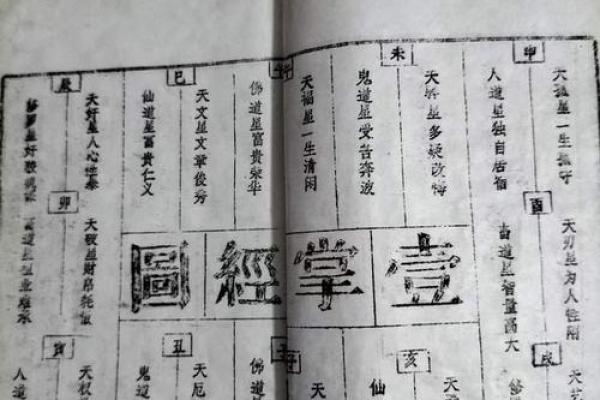 申
天孤星一生孤守
人道星独自居
未
多疑改悔
鬼道星受苦奔波
午
天福星一生清闲
佛道星富贵荣华
巳
天文星文章俊秀
仙道星富贵仁义
辰
星人心性
酉
天刃星为人性刚
畜道星智量高大
壹掌經圖
卯
天破星财帛耗散
畜道星祖业难承
戌
天
亥
天
仙
子
天
佛道星
丑
天厄
鬼道
寅
天权
人道